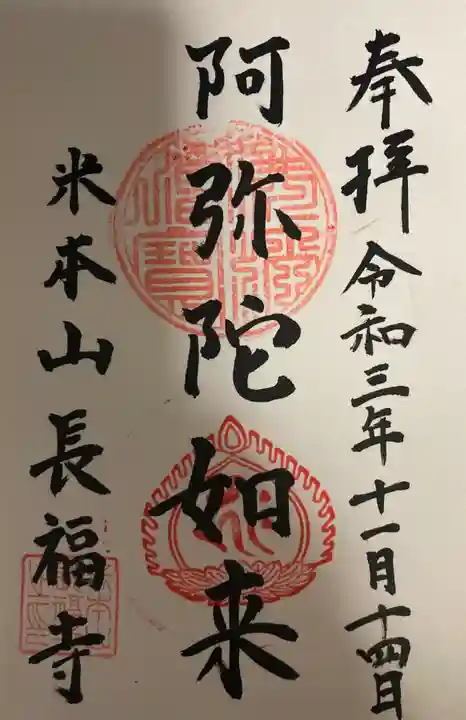 奉拝 令和三年十一月十四日
阿弥陀如来
米本山 長福寺